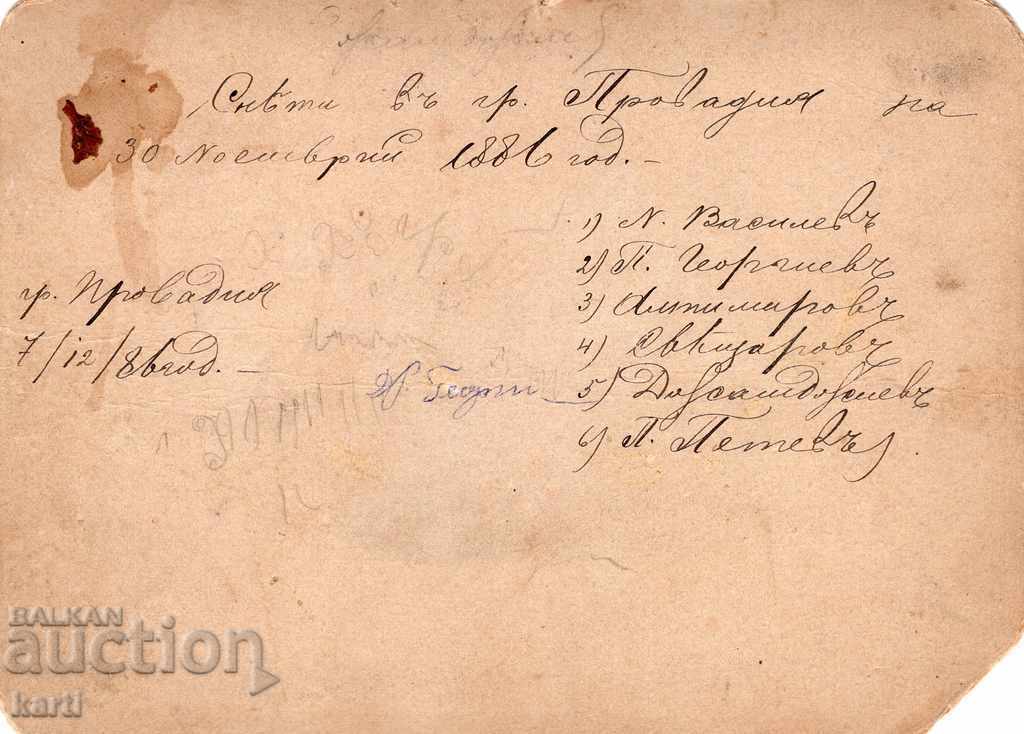 Снѣти въ гр. Провадия на
30 Ноемврий 1886 год. –
1) Н. Василевъ
2) П. Георгиевъ
3) Алтимировъ
4) Свѣщаровъ
гр. Провадия
7/12/86 год. –
5)
6) П. Петевъ
BALKAN
auction
karti